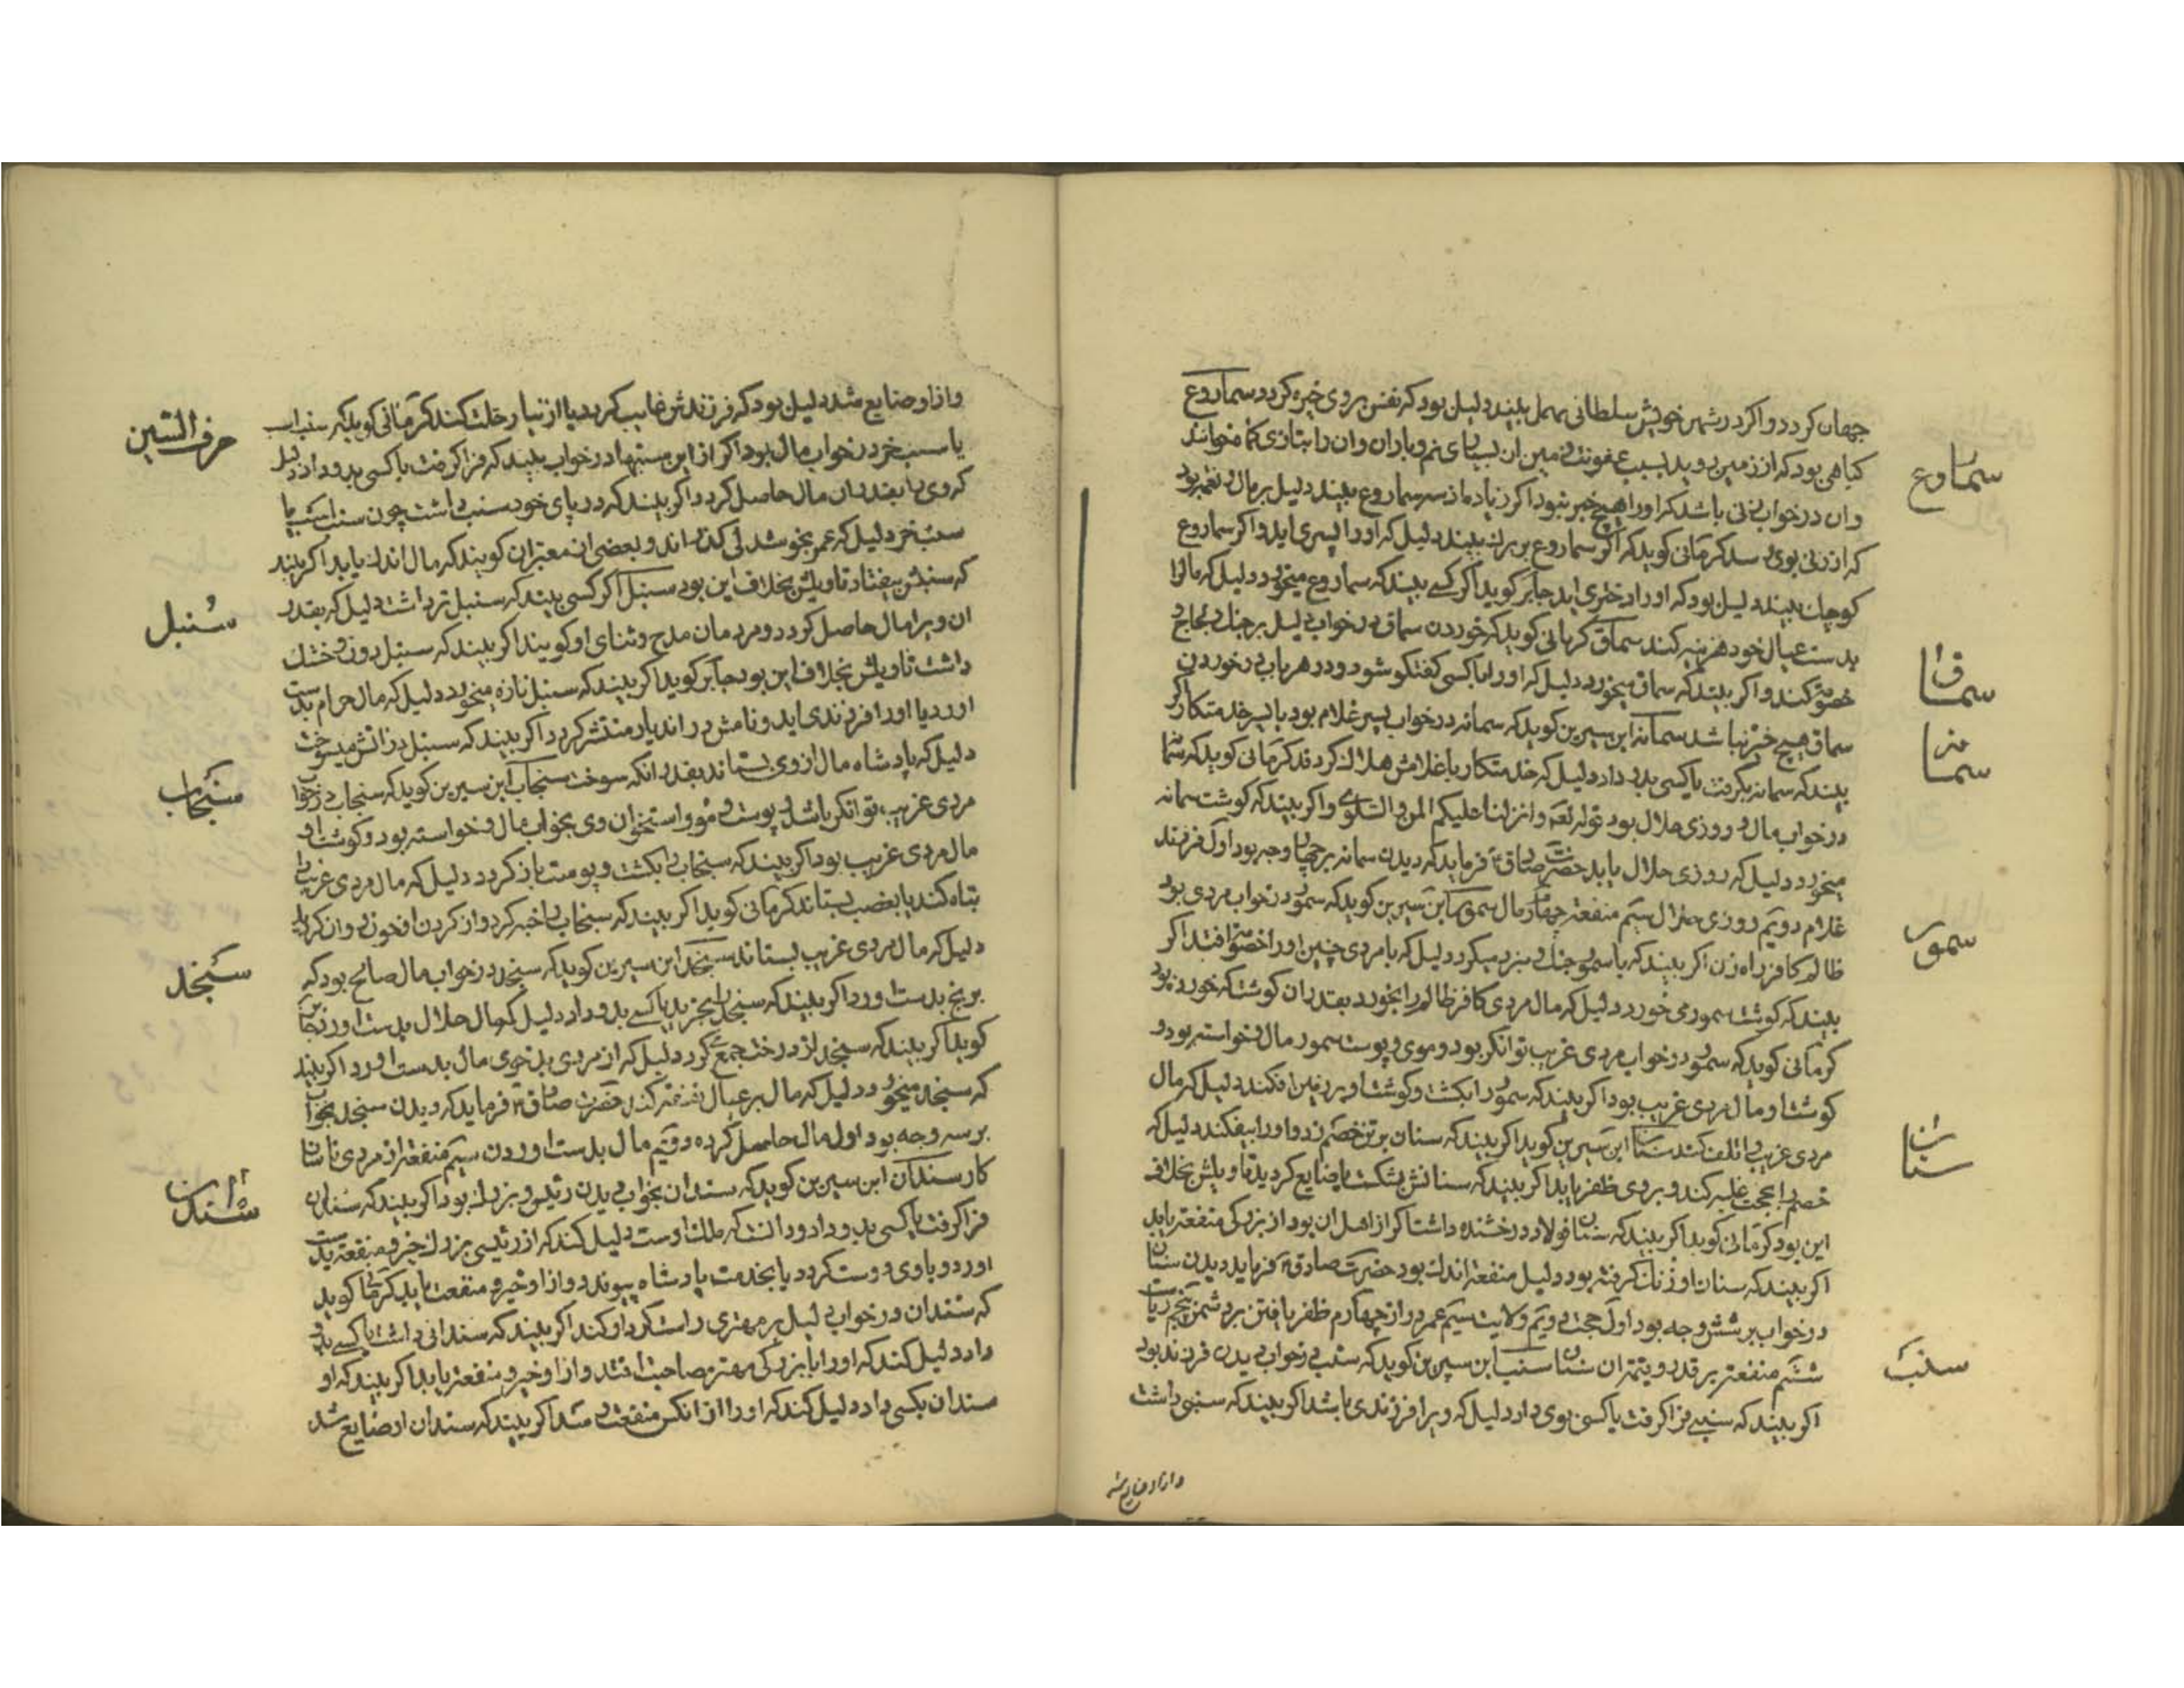 جهان کردد واکر در شهر خویش سلطانی مهمل بیند دلیل بود که نفس بروی خیره کردد سماروغ
سماروغ
کیاهی بود که از زمین روید بسبب عفونت زمین ان بسیاری نم و باران وان را بتازی کماة خوانند
وان در خواب زنی باشد که اورا هیچ خیر نبود اکر زیاد از سه سماروغ بیند دلیل بر مال و نعمت بود
که از زنی بوی رسد کرمانی کوید که اکر سماروغ بزرك بیند دلیل که اورا پسری اید واکر سماروغ
کوچك بیند دلیل بود که اورا دختری اید جابر کوید اکر کسے بیند که سماروغ میخورد دلیل که مال را
بدست عیال خود هزینه کند سماق کرمانی کوید که خوردن سماق در خواب دلیل بر جنك و لجاج
سماق
خصومت کند واکر بیند که سماق میخورد دلیل که اورا با کسی کفتکو شود و در هر باب در خوردن
سماق هیچ خیر نباشد سمانه ابن سیرین کوید که سمانه در خواب پسر غلام بود یا پسر خدمتکار اکر
سمانه
بیند که سمانه بکرفت یا کسی بدو داد دلیل که خدمتکار یا غلامش هلاك کردد کرمانی کوید که سمانه
در خواب مال و روزی حلال بود قوله تعه وانزلنا علیکم المن والسلوی واکر بیند که کوشت سمانه
میخورد دلیل که روزی حلال یابد حضرت صادق ع فرماید که دیدن سمانه بر چهار وجه بود اول فرزند
غلام دویم روزی حلال سیم منفعت چهارم مال سمور ابن سیرین کوید که سمور در خواب مردی بود
سمور
ظالم کافر راه زن اکر بیند که با سمور جنك و نبرد میکرد دلیل که با مردی چنین اورا خصومت افتد اکر
بیند که کوشت سمور می خورد دلیل که مال مردی کافر ظالم را بخورد بقدر ان کوشت که خورده بود
کرمانی کوید که سمور در خواب مردی غریب توانکر بود و موی و پوست سمور مال و خواسته بود و
کوشت او مال مردی غریب بود اکر بیند که سمور را بکشت و کوشت او بر زمین افکند دلیل که مال
مردی غریب را تلف کند سنان ابن سیرین کوید اکر بیند که سنان بر تن خصم زد و اورا بیفکند دلیل که
سنان
خصم را بحجت غلبه کند و بر وی ظفر یابد اکر بیند که سنانش بشکست یا ضایع کردید تاویلش بخلاف
این بود کرمانی کوید اکر بیند که سنان فولاد درخشنده داشت اکر از اهل ان بود از بزرکی منفعت یابد
اکر بیند که سنان او زنك کرفته بود دلیل منفعت اندك بود حضرت صادق ع فرماید دیدن سنان
در خواب بر شش وجه بود اول حجت دویم ولایت سیم عمر دراز چهارم ظفر یافتن بر دشمن پنجم ریاست
ششم منفعت بر قدر و قیمت ان سنان سنب ابن سیرین کوید که سنب در خواب دیدن فرزند بود
سنب
اکر بیند که سنبی فرا کرفت یا کسی بوی داد دلیل که ویرا فرزندی باشد اکر بیند که سنبی داشت
واز او ضایع شد
واز او ضایع شد دلیل بود که فرزندش غایب کردد یا از دنیا رحلت کند کرمانی کوید که سنب اسب
حرف السین
یا سنب خر در خواب مال بود اکر از این سنبها در خواب بیند که فرا کرفت یا کسی بدو داد دلیل
که وی را بقدر ان مال حاصل کردد واکر بیند که در پای خود سنب داشت چون سنب اسب یا
سنب خر دلیل که عمر بخوشدلی کذراند و بعضی از معبران کویند که مال اندك یابد اکر بیند
که سنبش بیفتاد تاویلش بخلاف این بود سنبل اکر کسی بیند که سنبل تر داشت دلیل که بقدر
سنبل
ان ویرا مال حاصل کردد و مردمان مدح و ثنای او کویند اکر بیند که سنبل زرد و خشك
داشت تاویلش بخلاف این بود جابر کوید اکر بیند که سنبل تازه میخورد دلیل که مال حرام بدست
اورد یا اورا فرزندی اید و نامش در اندیار منتشر کردد اکر بیند که سنبل در اتش میسوخت
دلیل که پادشاه مال از وی بستاند بقدر انکه سوخت سنجاب ابن سیرین کوید که سنجاب در خواب
سنجاب
مردی غریب توانکر باشد و پوست و مو و استخوان وی بخواب مال و خواسته بود و کوشت او
مال مردی غریب بود اکر بیند که سنجاب را بکشت و پوست باز کردد دلیل که مال مردی غریب را
تباه کند یا بغصب بستاند کرمانی کوید اکر بیند که سنجاب را خبه کرد و از کردن او خون روان کردید
دلیل که مال مردی غریب بستاند سنجد ابن سیرین کوید که سنجد در خواب مال صالح بود که
سنجد
برنج بدست اورد اکر بیند که سنجد را بخرید یا کسے بدو داد دلیل که مال حلال بدست اورد جابر
کوید اکر بیند که سنجد از درخت جمع کرد دلیل که از مردی بدخوی مال بدست اورد اکر بیند
که سنجد میخورد دلیل که مال بر عیال نفقه کند حضرت صادق ع فرماید که دیدن سنجد بخواب
بر سه وجه بود اول مال حاصل کرده دویم مال بدست اوردن سیم منفعت از مردی نا سازکار
سندان ابن سیرین کوید که سندان بخواب دیدن رئیس و بزرك بود اکر بیند که سندان
سندان
فرا کرفت یا کسی بدو داد و دانست که ملك اوست دلیل کند که از رئیسی بزرك خیر و منفعت بدست
اورد و با وی دوست کردد یا بخدمت پادشاه پیوندد واز او خیر و منفعت یابد کرمانی کوید
که سندان در خواب دلیل بر مهتری راست کردار کند اکر بیند که سندانی داشت یا کسے بدو
داد دلیل کند که اورا با بزرکی مهتر مصاحبت افتد و از او خیر و منفعت یابد اکر بیند که او
سندان بکسی داد دلیل کند که اورا از انکس منفعت رسد اکر بیند که سندان او ضایع شد